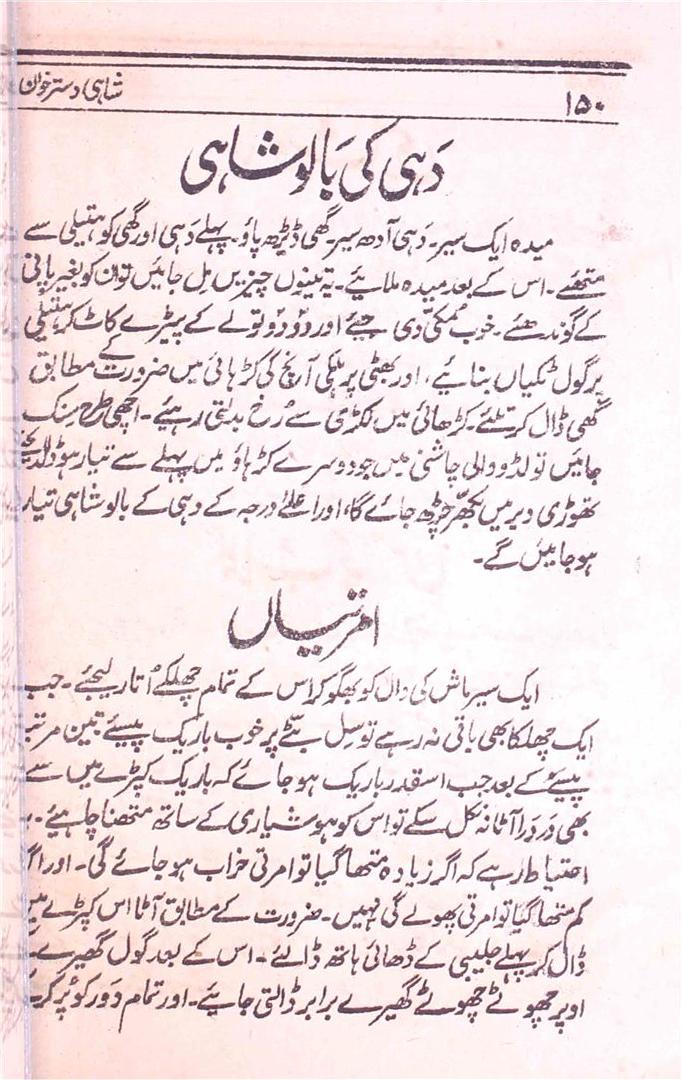 ۱۵۰
شاہی دسترخوان
دَہی کی بَالوشاہی
میدہ ایک سیر۔ دَہی آدھ سیر۔ گھی ڈیڑھ پاؤ۔ پہلے دَہی اور گھی کو ہتیلی سے
متھئے۔ اس کے بعد میدہ ملایئے۔ یہ تینوں چیزیں مل جائیں تو ان کو بغیر پانی
کے گوندھئے۔ خوب مُمکّی دی جیئے اور دو دو تولے کے پیڑے کاٹ کر ہتیلی
پر گول ٹکیاں بنایئے، اور بھٹی پر ہلکی آنچ کی کڑہائی میں ضرورت کے مطابق
گھی ڈال کر تلئے۔ کڑھائی میں لکڑی سے رُخ بدلتی رہیے۔ اچھی طرح سنک
جائیں تو لڈو والی چاشنی میں جو دوسرے کڑہاؤ میں پہلے سے تیار ہو ڈالدیجئے
تھوڑی دیر میں کھِر چڑھ جائے گا، اور اعلےٰ درجہ کے دہی کے بالوشاہی تیار
ہوجائیں گے۔
امرتیاں
ایک سیر ماش کی دال کو بھگو کر اس کے تمام چھلکے اُتار لیجئے۔ جب
ایک چھلکا بھی باقی نہ رہے تو سِل بٹے پر خوب باریک پیسیئے تین مرتبہ
پیسے کے بعد جب اسقدر باریک ہوجائے کہ باریک کپڑے میں سے
بھی دَردَرا آٹا نہ نکل سکے تو اس کو ہوشیاری کے ساتھ متھنا چاہیئے۔
احتیاط رہے کہ اگر زیادہ متھا گیا تو امرتی خراب ہوجائے گی۔ اور اگر
کم متھا گیا تو امرتی پھولے گی نہیں۔ ضرورت کے مطابق آٹا اس کپڑے میں
ڈال کر پہلے جلیبی کے ڈھائی ہاتھ ڈالئے۔ اس کے بعد گول گھیرے
اوپر چھوٹے چھوٹے گھیرے برابر ڈالتی جایئے۔ اور تمام دَور کو پُر کر